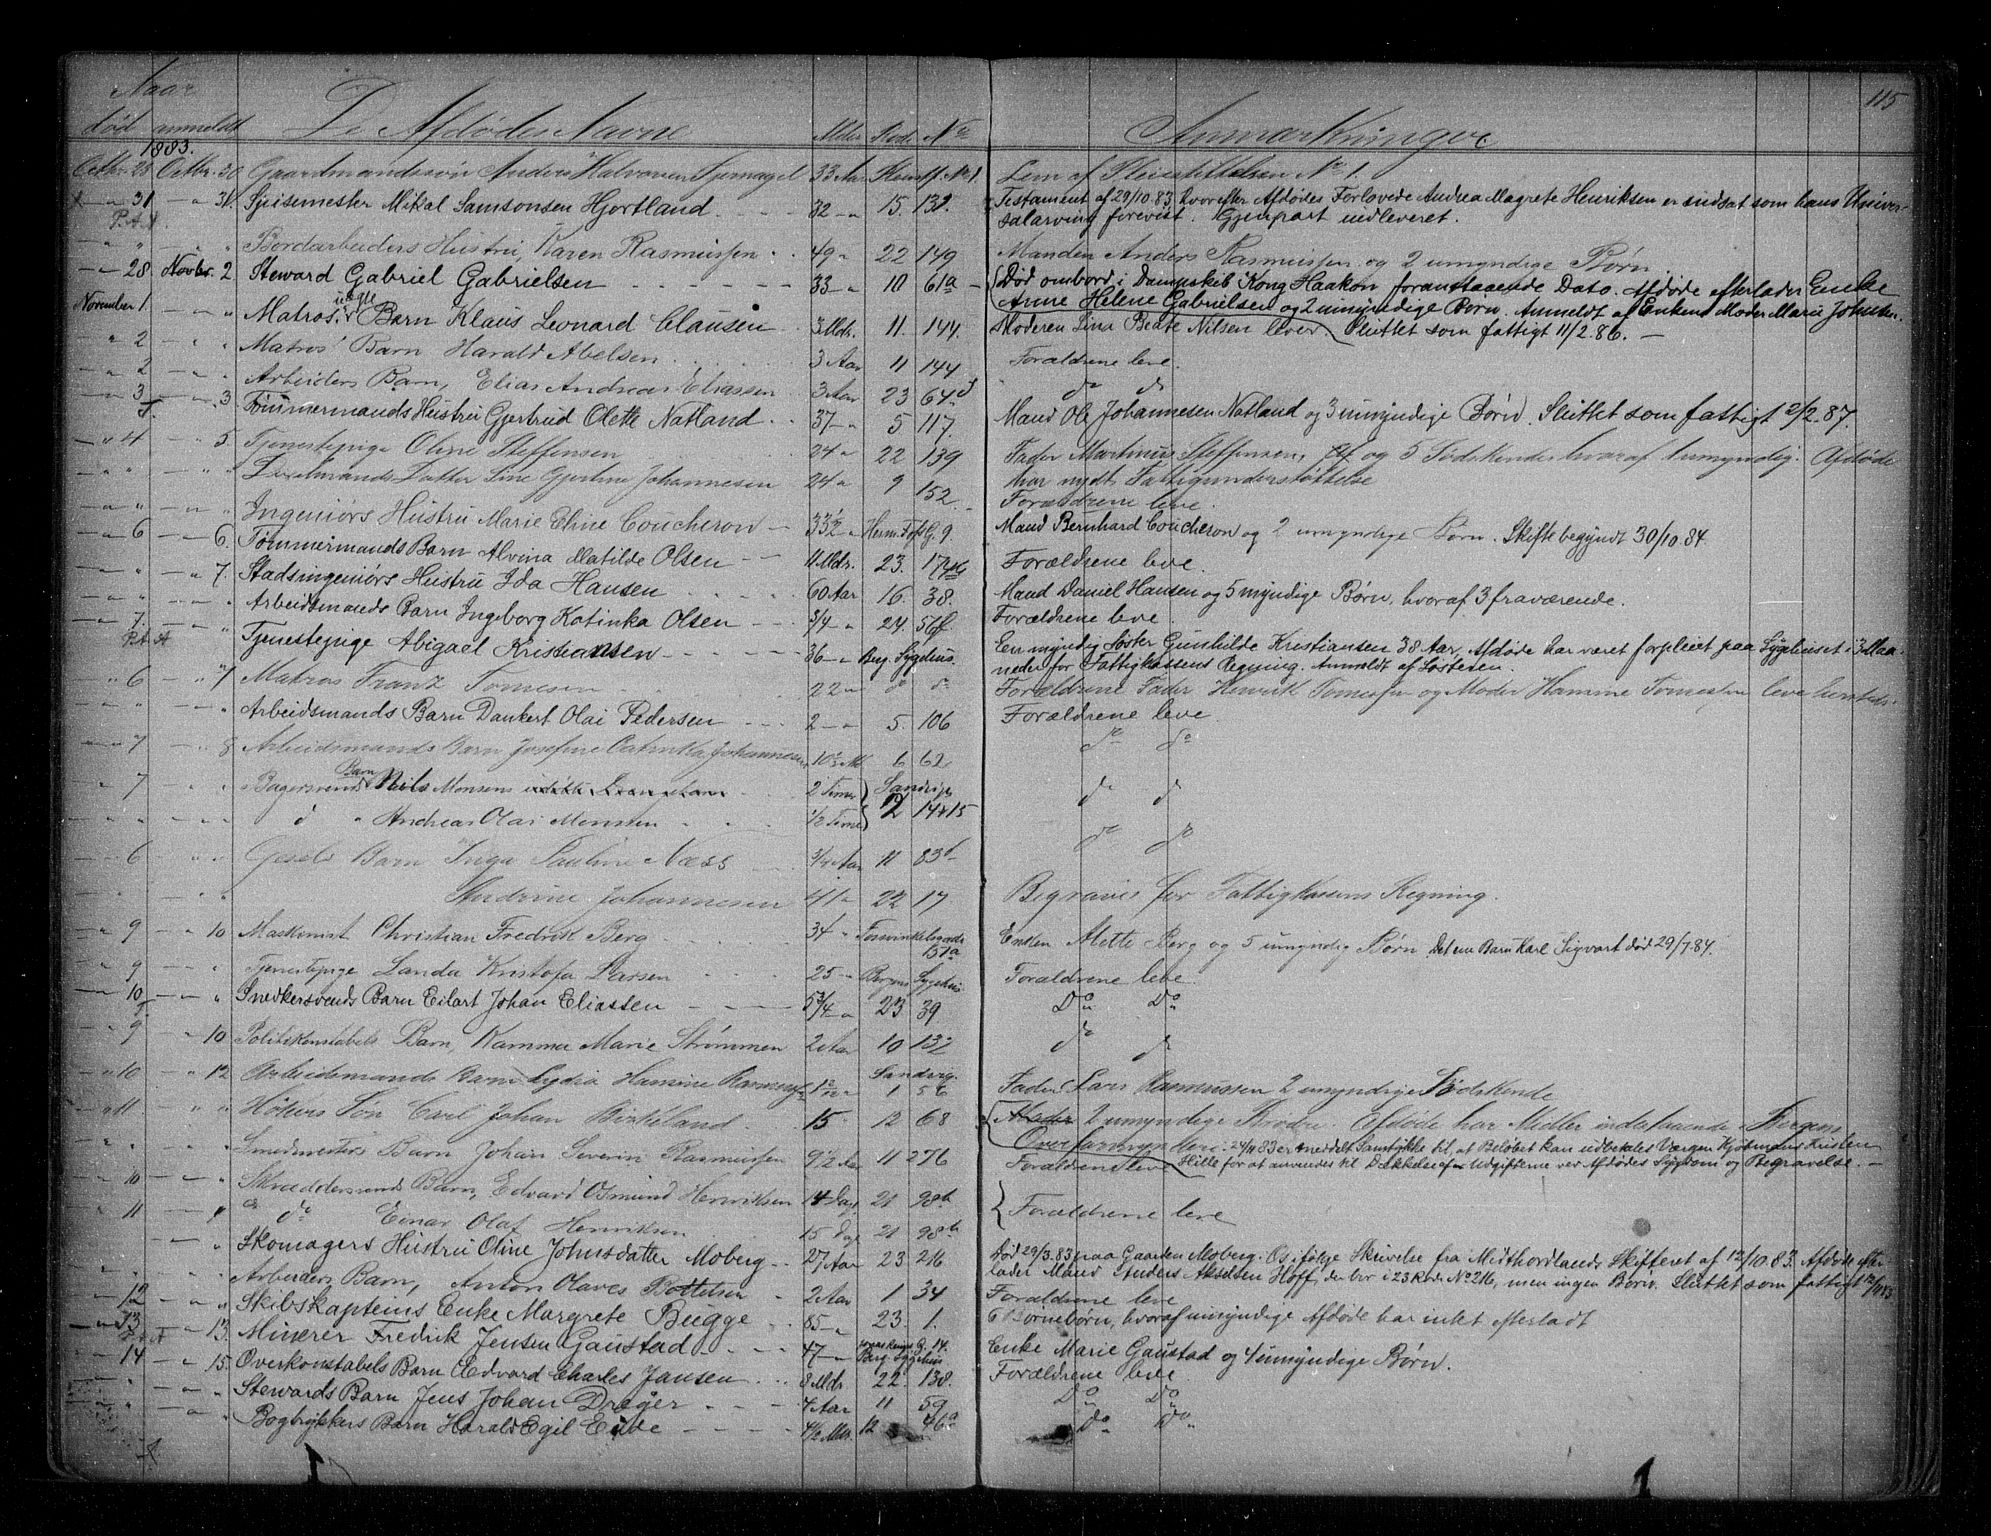 115
Naar
død anmeldt De Afdødes Navne Alder Rode No Anmærkninger
1883.
Octbr. 28 Octbr. 30 Gaardmandssøn Anders Halvorsen 33 Aar Stiftf. No 1. Lem af Pleiestiftelsen No 1.
" 31 " 31. Spisemester Mikal Samsonsen Hjortland. 32 " 15. 132. Testament af 29/10.83, hvorefter Afdødes Forlovede Andrea Magrete Henriksen er indsat som hans Univer-
P.A.A. salarving forevist. Gjenpart udleveret.
" " " " Bordarbeiders Hustru, Karen Rasmussen 49 " 22 149 Manden Anders Rasmussen og 2 umyndige Børn.
" 28. Novbr. 2 Steward Gabriel Gabrielsen 33 " 10 61a Død ombord i Dampskib Kong Haakon foranstaaende Dato. Afdøde efterlader Enke
Anne Helene Gabrielsen og 2 umyndige Børn. Anmeldt af Enkens Moder Marie Johnsen.
November 1 " " Matros. uægte Barn Klaus Leonard Clausen 3 Mdr. 11. 144. Moderen Lina Beate Nilsen lever Sluttet som fattigt 11/2.86. —
" 2 " " Matros' Barn Harald Abelsen 3 Aar 11 144 Forældrene leve.
" 2 " " Arbeiders Barn, Elias Andreas Eliassen 3 Aar 23 64d do do
" 3 " 3 Tømmermands Hustru Gjertrud Olette Natland 37 " 5 117. Mand Ole Johannesen Natland og 3 umyndige Børn. Sluttet som fattigt 2/2.87.
" 4 " 5 Tjenestepige Oline Steffensen 24 " 22 139 Fader Martinus Steffensen, og 5 Sødskende hvoraf 1 umyndig. Afdøde
har nydt Fattigunderstøttelse
" " " " Datter Line Gjertine Johannesen 24 " 9 152 Forældrene leve.
" " " " Ingeniørs Hustru Marie Eline Coucheron 33 1/2 " Herm. Foss G. 9. Mand Bernhard Coucheron og 2 umyndige Børn. Skifte begyndt 30/10.84.
" 6 " 6. Tømmermands Barn Alvina Matilde Olsen 11 Mdr. 23. 174b Forældrene leve.
" " " 7. Stadsingeniørs Hustru Ida Hansen 60 Aar 16. 38. Mand Daniel Hansen og 5 myndige Børn, hvoraf 3 fraværende.
" " " " Arbeidsmands Barn Ingeborg Katinka Olsen 3/4 " 24. 56f. Forældrene leve.
" 7. " " Tjenestepige Abigael Kristiansen 36 " Berg. Sygehus. En myndig Søster Gunhilde Kristiansen 38 Aar, Afdøde har været forpleiet paa Sygehuset i 3 Maa-
P.A.A neder for Fattigkassens Regning. Anmeldt af Søsteren.
" 6 " 7 Matros Franz Tomesen 22 " do do Forældrene Fader Henrik Tomessen og Moder Hamine Tomessen leve hersteds.
" " " " Arbeidsmands Barn Dankert Olai Pedersen 2 " 5. 106 Forældrene leve
" 7 " 8 Arbeidsmands Barn Josefine Catinka Johannesen 10 1/2 M 6 62 do do
" 7 " " Bagersvend Barn Niels Monsens 2 Timer Sandvigs do do
" " " " do " Andreas Olai Monsen 1/2 Time 2 14 & 15 do do
" 6 " " Gesels Barn Inga Pauline Næss 3/4 Aar 11 83b
" " " " Andrine Johannesen 41 " 22 17 Begraves for Fattigkassens Regning.
" 9 " 10 Maskinist Christian Fredrik Berg 34 " Fosswinkelsgade 31a Enken Alette Berg og 5 umyndig Børn. Det ene Barn Karl Sigvart død 29/7.84.
" 9 " " Tjenestepige Landa Kristofa Larsen 25 " Bergens Sygehus Forældrene leve
" 10 " " Snedkersvends Barn Eilart Johan Eliassen 5 3/4 " 23 39 Do Do
" 9 " 10 Politikonstabels Barn, Kamma Marie Strømmen 2 Aar 10 132 do do
" 10 " 12 Arbeidsmands Barn Lydia Hansine Rasmussen 1 Sandvig. 1 56 Fader Lars Rasmussen 2 umyndige Sødskende
" 11. " " Høkers Søn Carl Johan Birkeland 15 12 68 2 umyndige Brødre. Afdøde har Midler indestaaende i Bergens
Overformynderi. 24/11 83 er meddelt Samtykke til, at Beløbet kan udbetales Værgen Kjøbmand Kristen
" " " " Smedmesters Barn Johan Severin Rasmussen 9 1/2 Aar 11 276 Forældrene leve Hille for at anvendes til Dækkelse af Udgifterne ved Afdødes Sygdom og Begravelse. —
" 10 " " Skræddersvends Barn, Edvard Osmund Henriksen 14 Dage 21 98b Forældrene leve
" 11 " " do Einar Olaf Henriksen 15 Dage 21 98b
" " " " Skomagers Hustru Oline Johnsdatter Moberg 27 Aar 23 216 Død 29/3.83 paa Gaarden Moberg. Os, ifølge Skrivelse fra Midthordlands Skifteret af 12/10.83. Afdøde efter-
lader Mand Anders Akselsen Hoff, der bor i 23 Rode No 216, men ingen Børn. Sluttet som fattigt
" " " " Arbeiders Barn, Anton Olaves Bottelsen 2 Aar 1 34 Forældrene leve
" 12 " " Skibskapteins Enke Margrete Bugge 85 " 23. 1. 6 Børnebørn, hvoraf umyndige Afdøde har intet efterladt
" 13 " 13. Minerer Fredrik Jensen Gaustad 47 " G. 14. Berg. Sygehus Enke Marie Gaustad og 4 umyndige Børn.
" 14 " 15. Overkonstabels Barn Edvard Charles Jansen 8 Mdr. 22. 138. Forældrene leve
" " " " Stewards Barn Jens Johan Drøger 4 Aar 11 59 Do Do
" " " " Bogtrykkers Barn Harald Egil Eide 4 1/2 Mdr. 12 46a Do Do